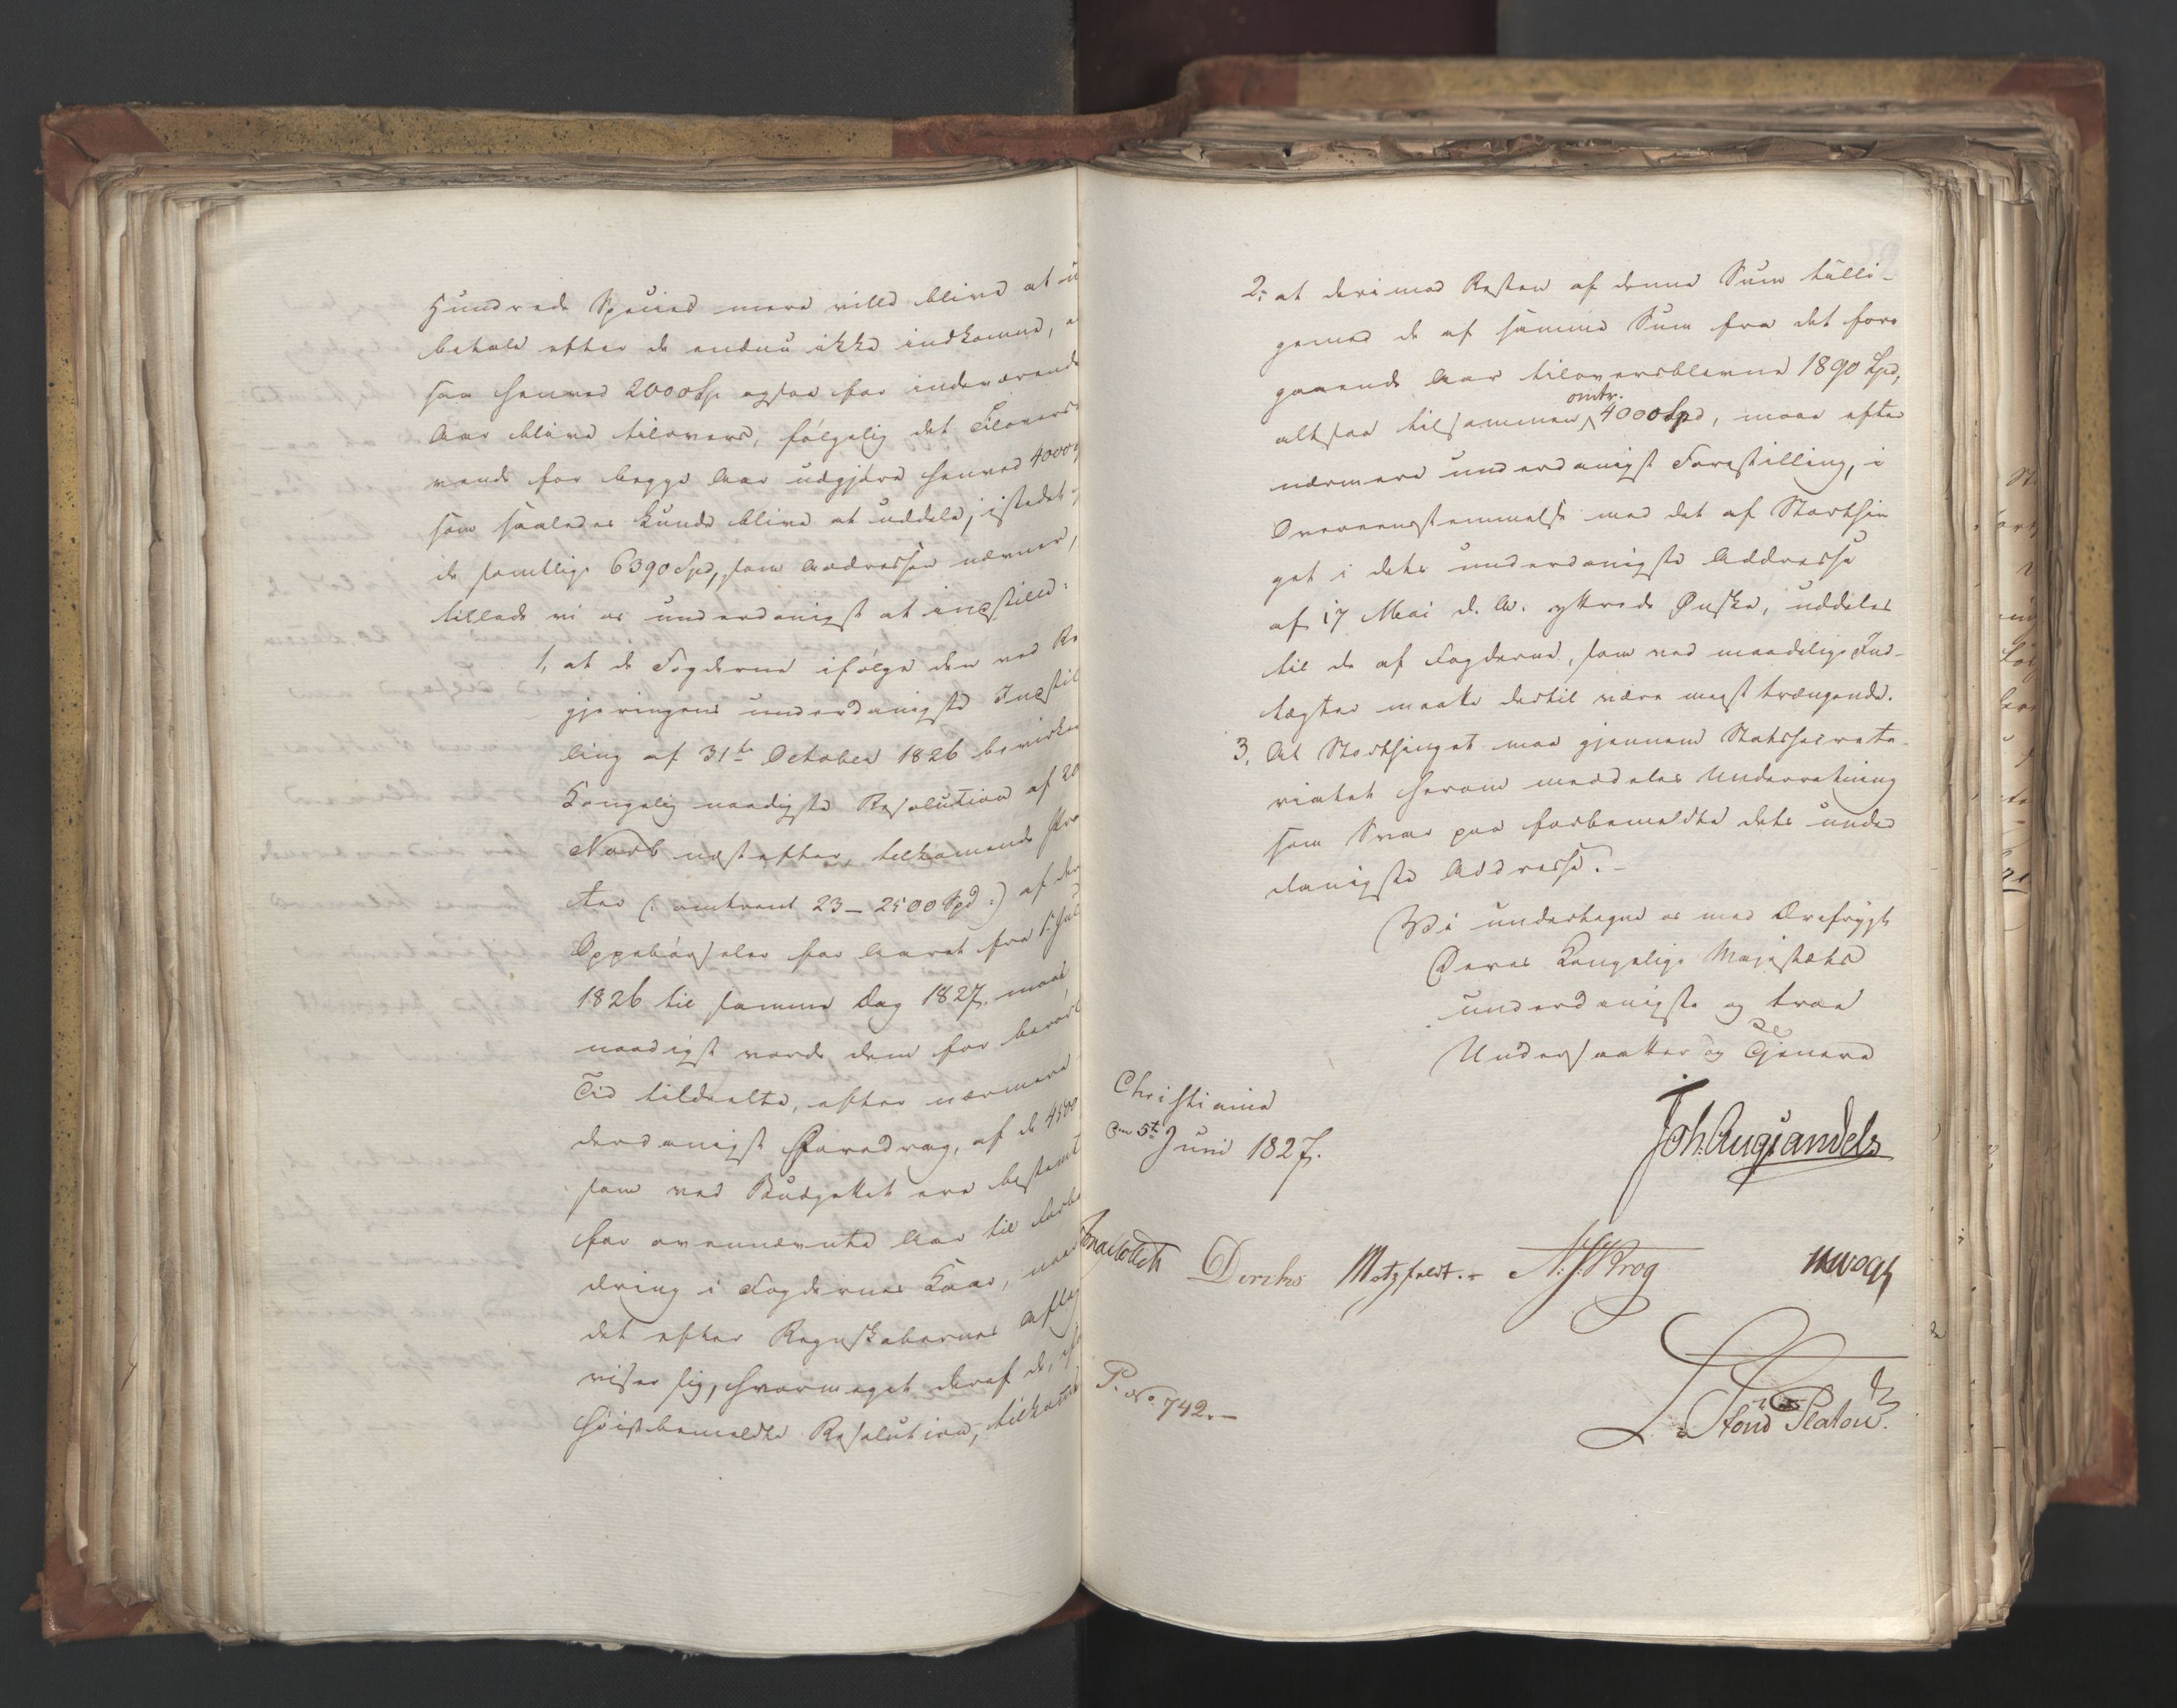 Hundrede Species mere ville blive at u
betale efter de endnu ikke indkomne,
saa henved 2000 Sp. ogsaa for indeværende
Aar blive tilovers, følgelig det Tilovers-
værende for begge Aar udgjøre henved 4000
som saaledes kunde blive at uddele, istedet
de samtlige 6390 Spd, som Addressen nævner,
tillade vi os underdanigst at indstille:
1, at de Fogderne ifølge den ved Re
gjeringens underdanigste Indstil
ling af 31te October 1826 bevirkede
Kongelig naadigste Resolution af 20
Novb. næstefter, tilkommende Pro
cter (: omtrent 23-2500 Spd :) af der
Oppebørseler for Aaret fra 1 Juli
1826 til samme Dag 1827, maae
naadigst vorde dem for berørte
Tid tildeelte, efter nærmere
derdanigst Foredrag, af de 4500
som ved Budgettet ere bestemt
for ovennævnte Aar til Forbe
dring i Fogdernes Kaar, naar
det efter Regnskabernes Aflæ
viser sig, hvormeget deraf de, ifø
høistbemeldte Resolution, tilkomme
2, at derimod Resten af denne Sum tilli-
gemed de af samme Sum fra det fore
gaaende Aar tiloversblevne 1890 Spd,
altsaa tilsammen omtr. 4000 Spd, maae efter
nærmere underdanigst Forestilling, i
Overeensstemmelse med det af Storthin
get i dets underdanigste Addresse
af 17 Mai d. A. yttrede Ønske, uddeles
til de af Fogderne, som ved maadelige Ind-
tægter maatte dertil være meest trængende.
3, At Storthinget maa gjennem Statssecreta-
riatet herom meddeles Underretning
som Svar paa forbemeldte dets under
danigste Addresse. -
Vi undertegne os med Ærefrygt
Deres Kongelige Majestæts
underdanigste og troe
Undersaatter og Tjenere
Christiania
den 5te Juni 1827.
Joh. Aug. Sandels
Jonas Collett Diriks Motzfeldt.- A. J. Krog Vogt
L. Stoud Platou
P. No. 742.-